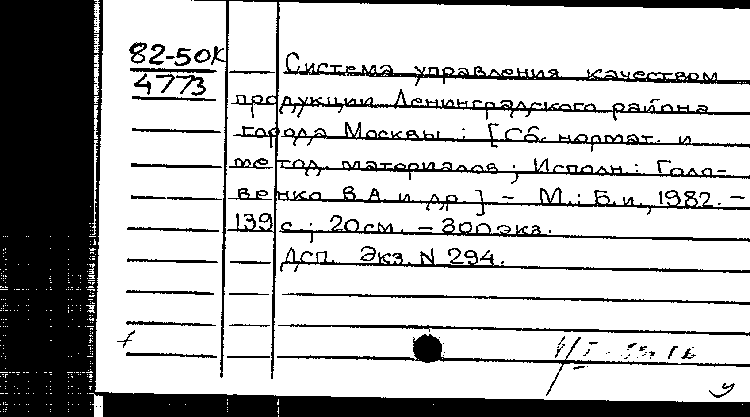 82-50К
4773
Система управления качеством
продукции Ленинградского района
города Москвы : [Сб. нормат. и
метод. материалов ; Исполн.: Голо-
венко В.А. и др.] - М.: Б.и., 1982. -
139 с.; 20 см. - 300 экз.
Дсп. Экз. N 294.